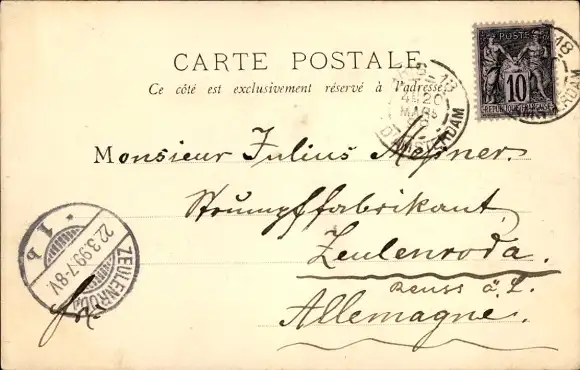 CARTE POSTALE
Ce côté est exclusivement réservé à l'adresse
POSTE
10
REPUBLIQUE FRANÇAISE
18
4E 20
MARS
D'AMSTERDAM
Monsieur Julius Messner.
Strumpffabrikant
Zeulenroda.
Reuss ä. L.
Allemagne.
* 1 b
22.3.99.7-8V.
ZEULENRODA